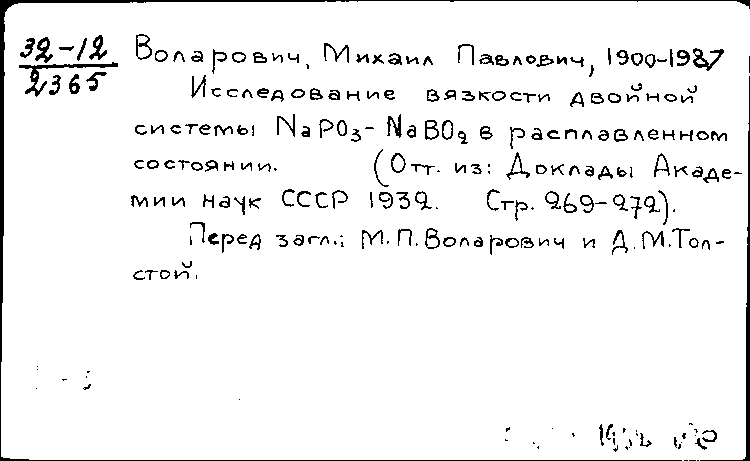 32-12 Воларович, Михаил Павлович, 1900-1987
2365 Исследование вязкости двойной
системы NaPO₃-NaBO₂ в расплавленном
состоянии. (Отт. из: Доклады Акаде-
мии наук СССР 1932. Стр. 269-272).
Перед загл.: М.П.Воларович и Д.М.Тол-
стой.